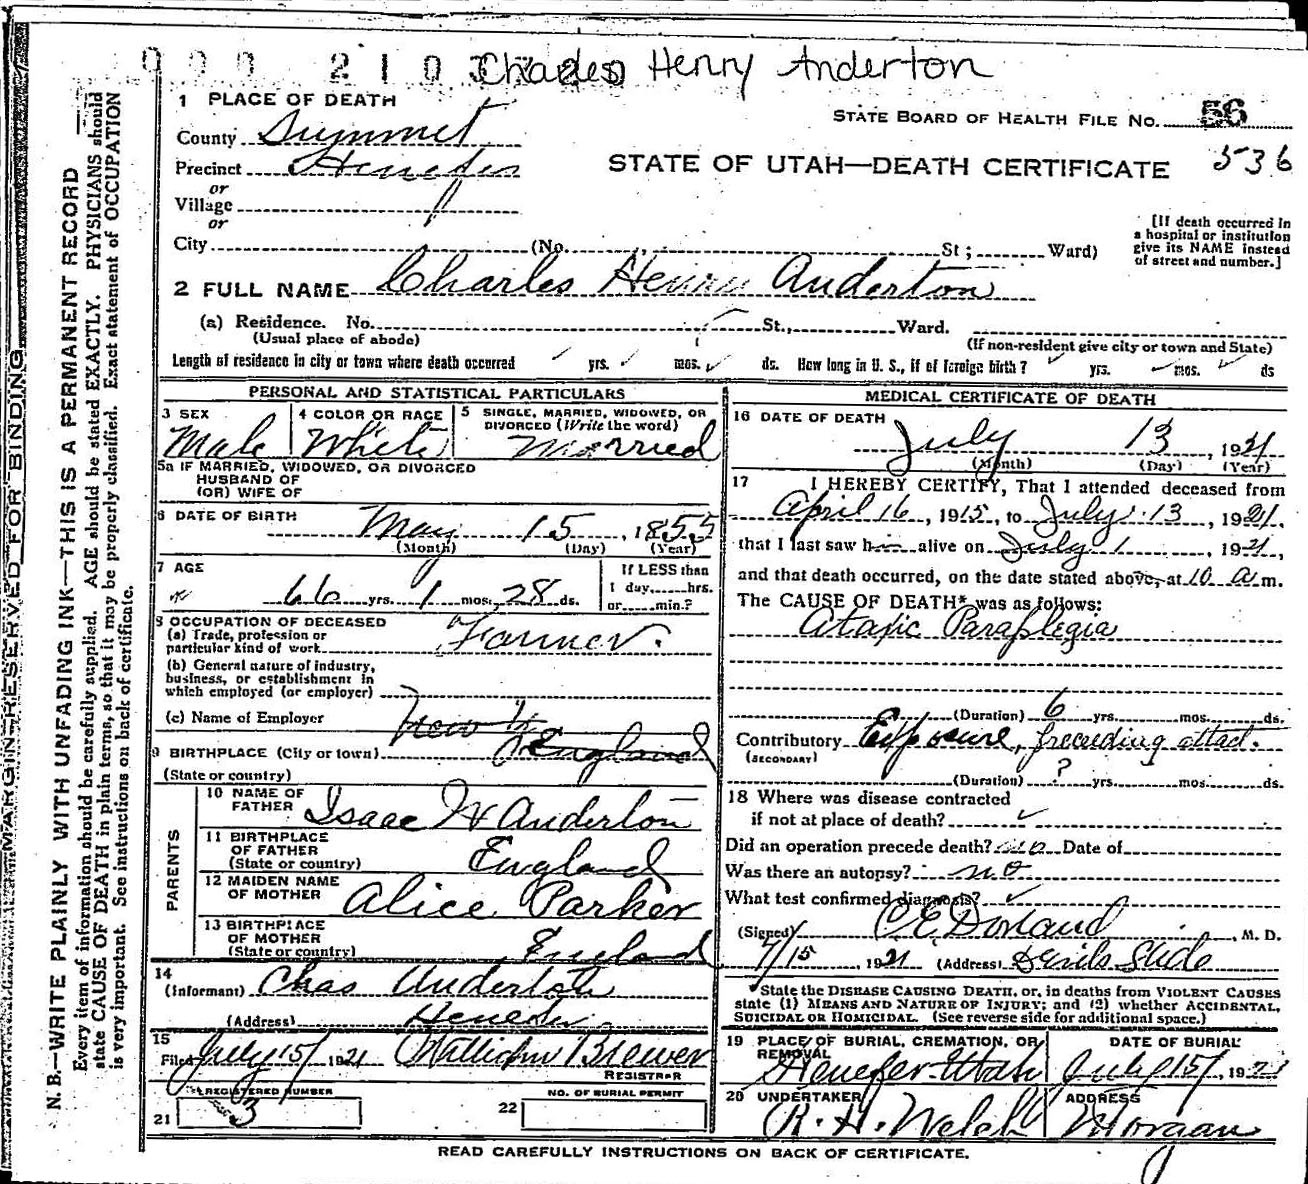 Charles Henry Anderton
1 PLACE OF DEATH
STATE BOARD OF HEALTH FILE NO. 56
County Summit
STATE OF UTAH—DEATH CERTIFICATE 536
Precinct Henefer
or
Village
or
City (No. St; Ward)
[If death occurred in
a hospital or institution
give its NAME instead
of street and number.]
2 FULL NAME Charles Henry Anderton
(a) Residence. No. St., Ward.
(Usual place of abode) (If non-resident give city or town and State)
Length of residence in city or town where death occurred yrs. mos. ds. How long in U. S., if of foreign birth? yrs. mos. ds
PERSONAL AND STATISTICAL PARTICULARS
3 SEX Male
4 COLOR OR RACE White
5 SINGLE, MARRIED, WIDOWED, OR
DIVORCED (Write the word)
Married
5a IF MARRIED, WIDOWED, OR DIVORCED
HUSBAND OF
(OR) WIFE OF
6 DATE OF BIRTH May 15, 1855
(Month) (Day) (Year)
7 AGE
66 yrs. 1 mos. 28 ds.
If LESS than
1 day, hrs.
or min.?
8 OCCUPATION OF DECEASED
(a) Trade, profession or
particular kind of work Farmer.
(b) General nature of industry,
business, or establishment in
which employed (or employer)
(c) Name of Employer
9 BIRTHPLACE (City or town) England
(State or country)
PARENTS
10 NAME OF
FATHER Isaac W Anderton
11 BIRTHPLACE
OF FATHER
(State or country) England
12 MAIDEN NAME
OF MOTHER Alice Parker
13 BIRTHPLACE
OF MOTHER
(State or country) England
14
(Informant) Chas Anderton
(Address) Henefer
15
Filed July 15/ 1921 Brewer
REGISTRAR
REGISTERED NUMBER
21 3
NO. OF BURIAL PERMIT
22
MEDICAL CERTIFICATE OF DEATH
16 DATE OF DEATH
July 13, 1921
(Month) (Day) (Year)
17 I HEREBY CERTIFY, That I attended deceased from
April 16, 1915, to July 13, 1921,
that I last saw him alive on July 1, 1921,
and that death occurred, on the date stated above, at 10 a m.
The CAUSE OF DEATH* was as follows:
Ataxic Paraplegia
(Duration) 6 yrs. mos. ds.
Contributory Exposure, preceeding attack.
(SECONDARY)
(Duration) ? yrs. mos. ds.
18 Where was disease contracted
if not at place of death?
Did an operation precede death? no Date of
Was there an autopsy? no
What test confirmed diagnosis?
(Signed) C E Dorland, M. D.
7/15, 1921 (Address) Devils Slide
*State the DISEASE CAUSING DEATH, or, in deaths from VIOLENT CAUSES
state (1) MEANS AND NATURE OF INJURY; and (2) whether ACCIDENTAL,
SUICIDAL OR HOMICIDAL. (See reverse side for additional space.)
19 PLACE OF BURIAL, CREMATION, OR
REMOVAL
Henefer Utah
DATE OF BURIAL
July 15/, 1921
20 UNDERTAKER
R. H. Welch
ADDRESS
Morgan
READ CAREFULLY INSTRUCTIONS ON BACK OF CERTIFICATE.
MARGIN RESERVED FOR BINDING
N. B.—WRITE PLAINLY WITH UNFADING INK—THIS IS A PERMANENT RECORD
Every item of information should be carefully supplied. AGE should be stated EXACTLY. PHYSICIANS should
state CAUSE OF DEATH in plain terms, so that it may be properly classified. Exact statement of OCCUPATION
is very important. See instructions on back of certificate.